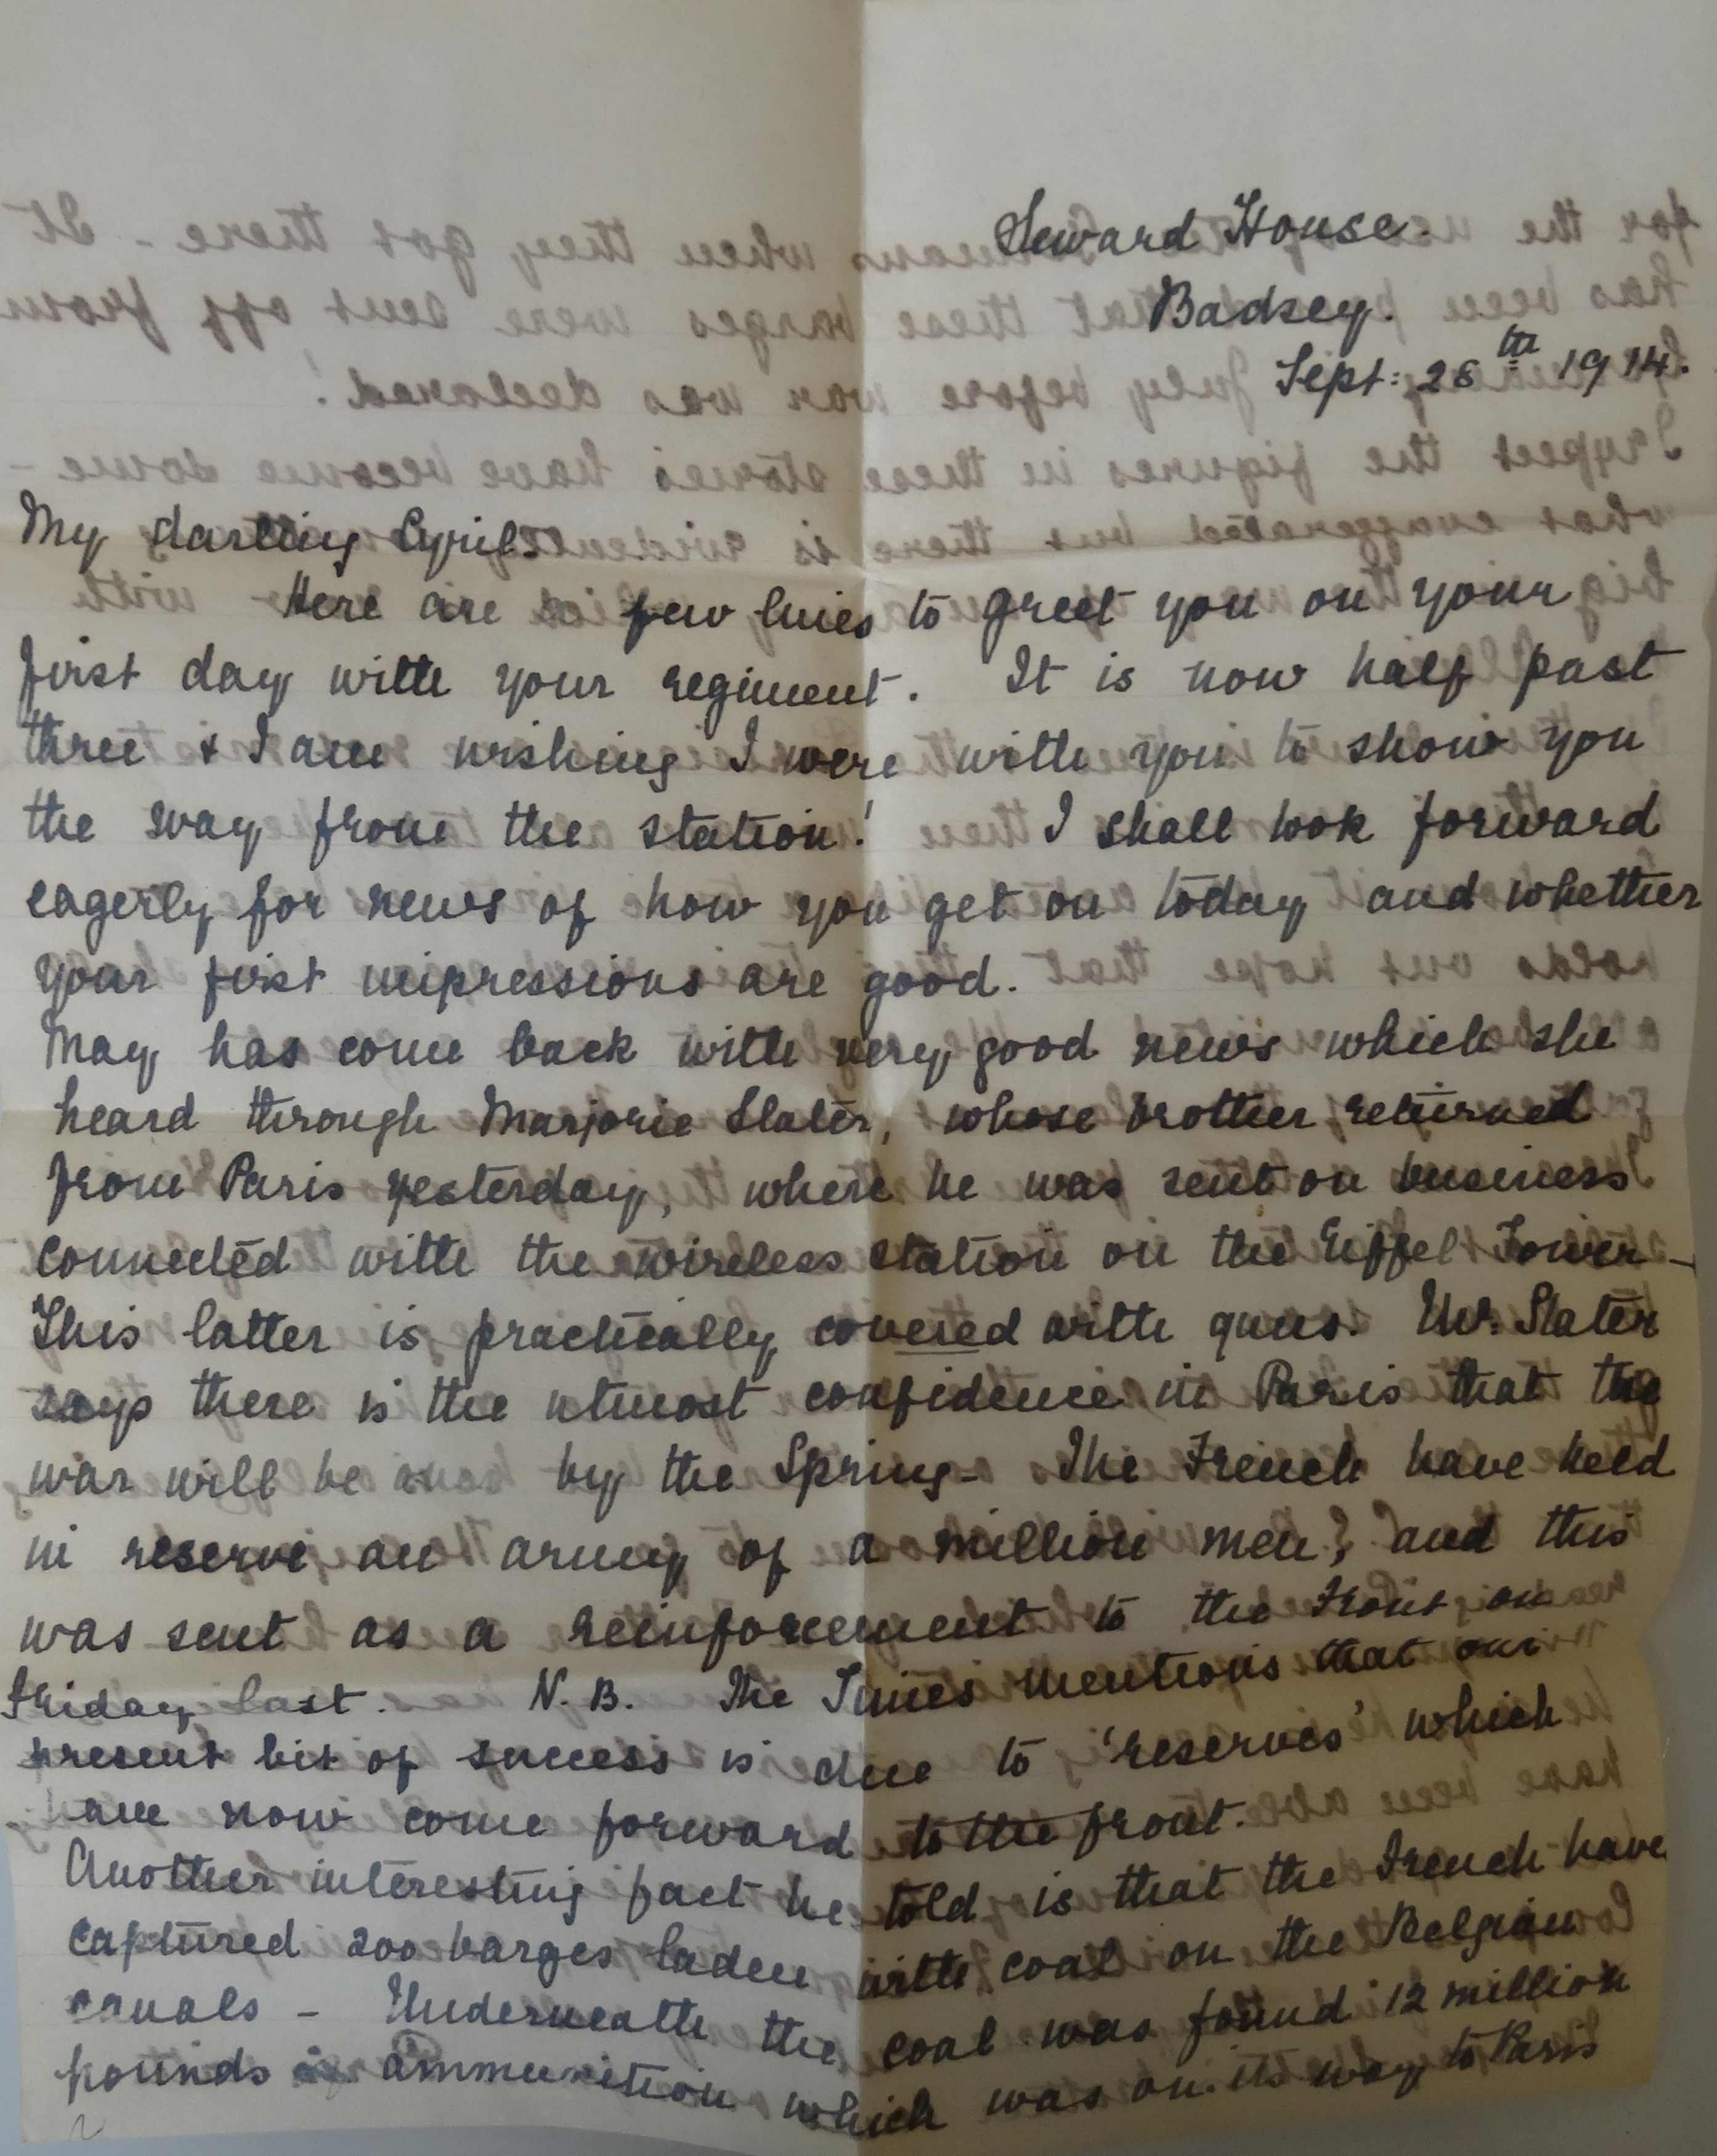 Seward House.
Badsey.
Sept: 28th 1914.
My darling Cyril.
Here are a few lines to greet you on your
first day with your regiment. It is now half past
three & I am wishing I were with you to show you
the way from the station! I shall look forward
eagerly for news of how you get on today and whether
your first impressions are good.
May has come back with very good news which she
heard through Marjorie Slater, whose brother returned
from Paris yesterday, where he was sent on business
connected with the wireless station on the Eiffel Tower -
This latter is practically covered with guns. Mr. Slater
says there is the utmost confidence in Paris that the
war will be over by the Spring - The French have held
in reserve an army of a million men, and this
was sent as a reinforcement to the Front on
Friday last. N.B. The Times mentions that our
present bit of success is due to 'reserves' which
have now come forward to the front.
Another interesting fact he told is that the French have
captured 200 barges laden with coal on the Belgian
canals - Underneath the coal was found 12 million
pounds ammunition which was on its way to Paris